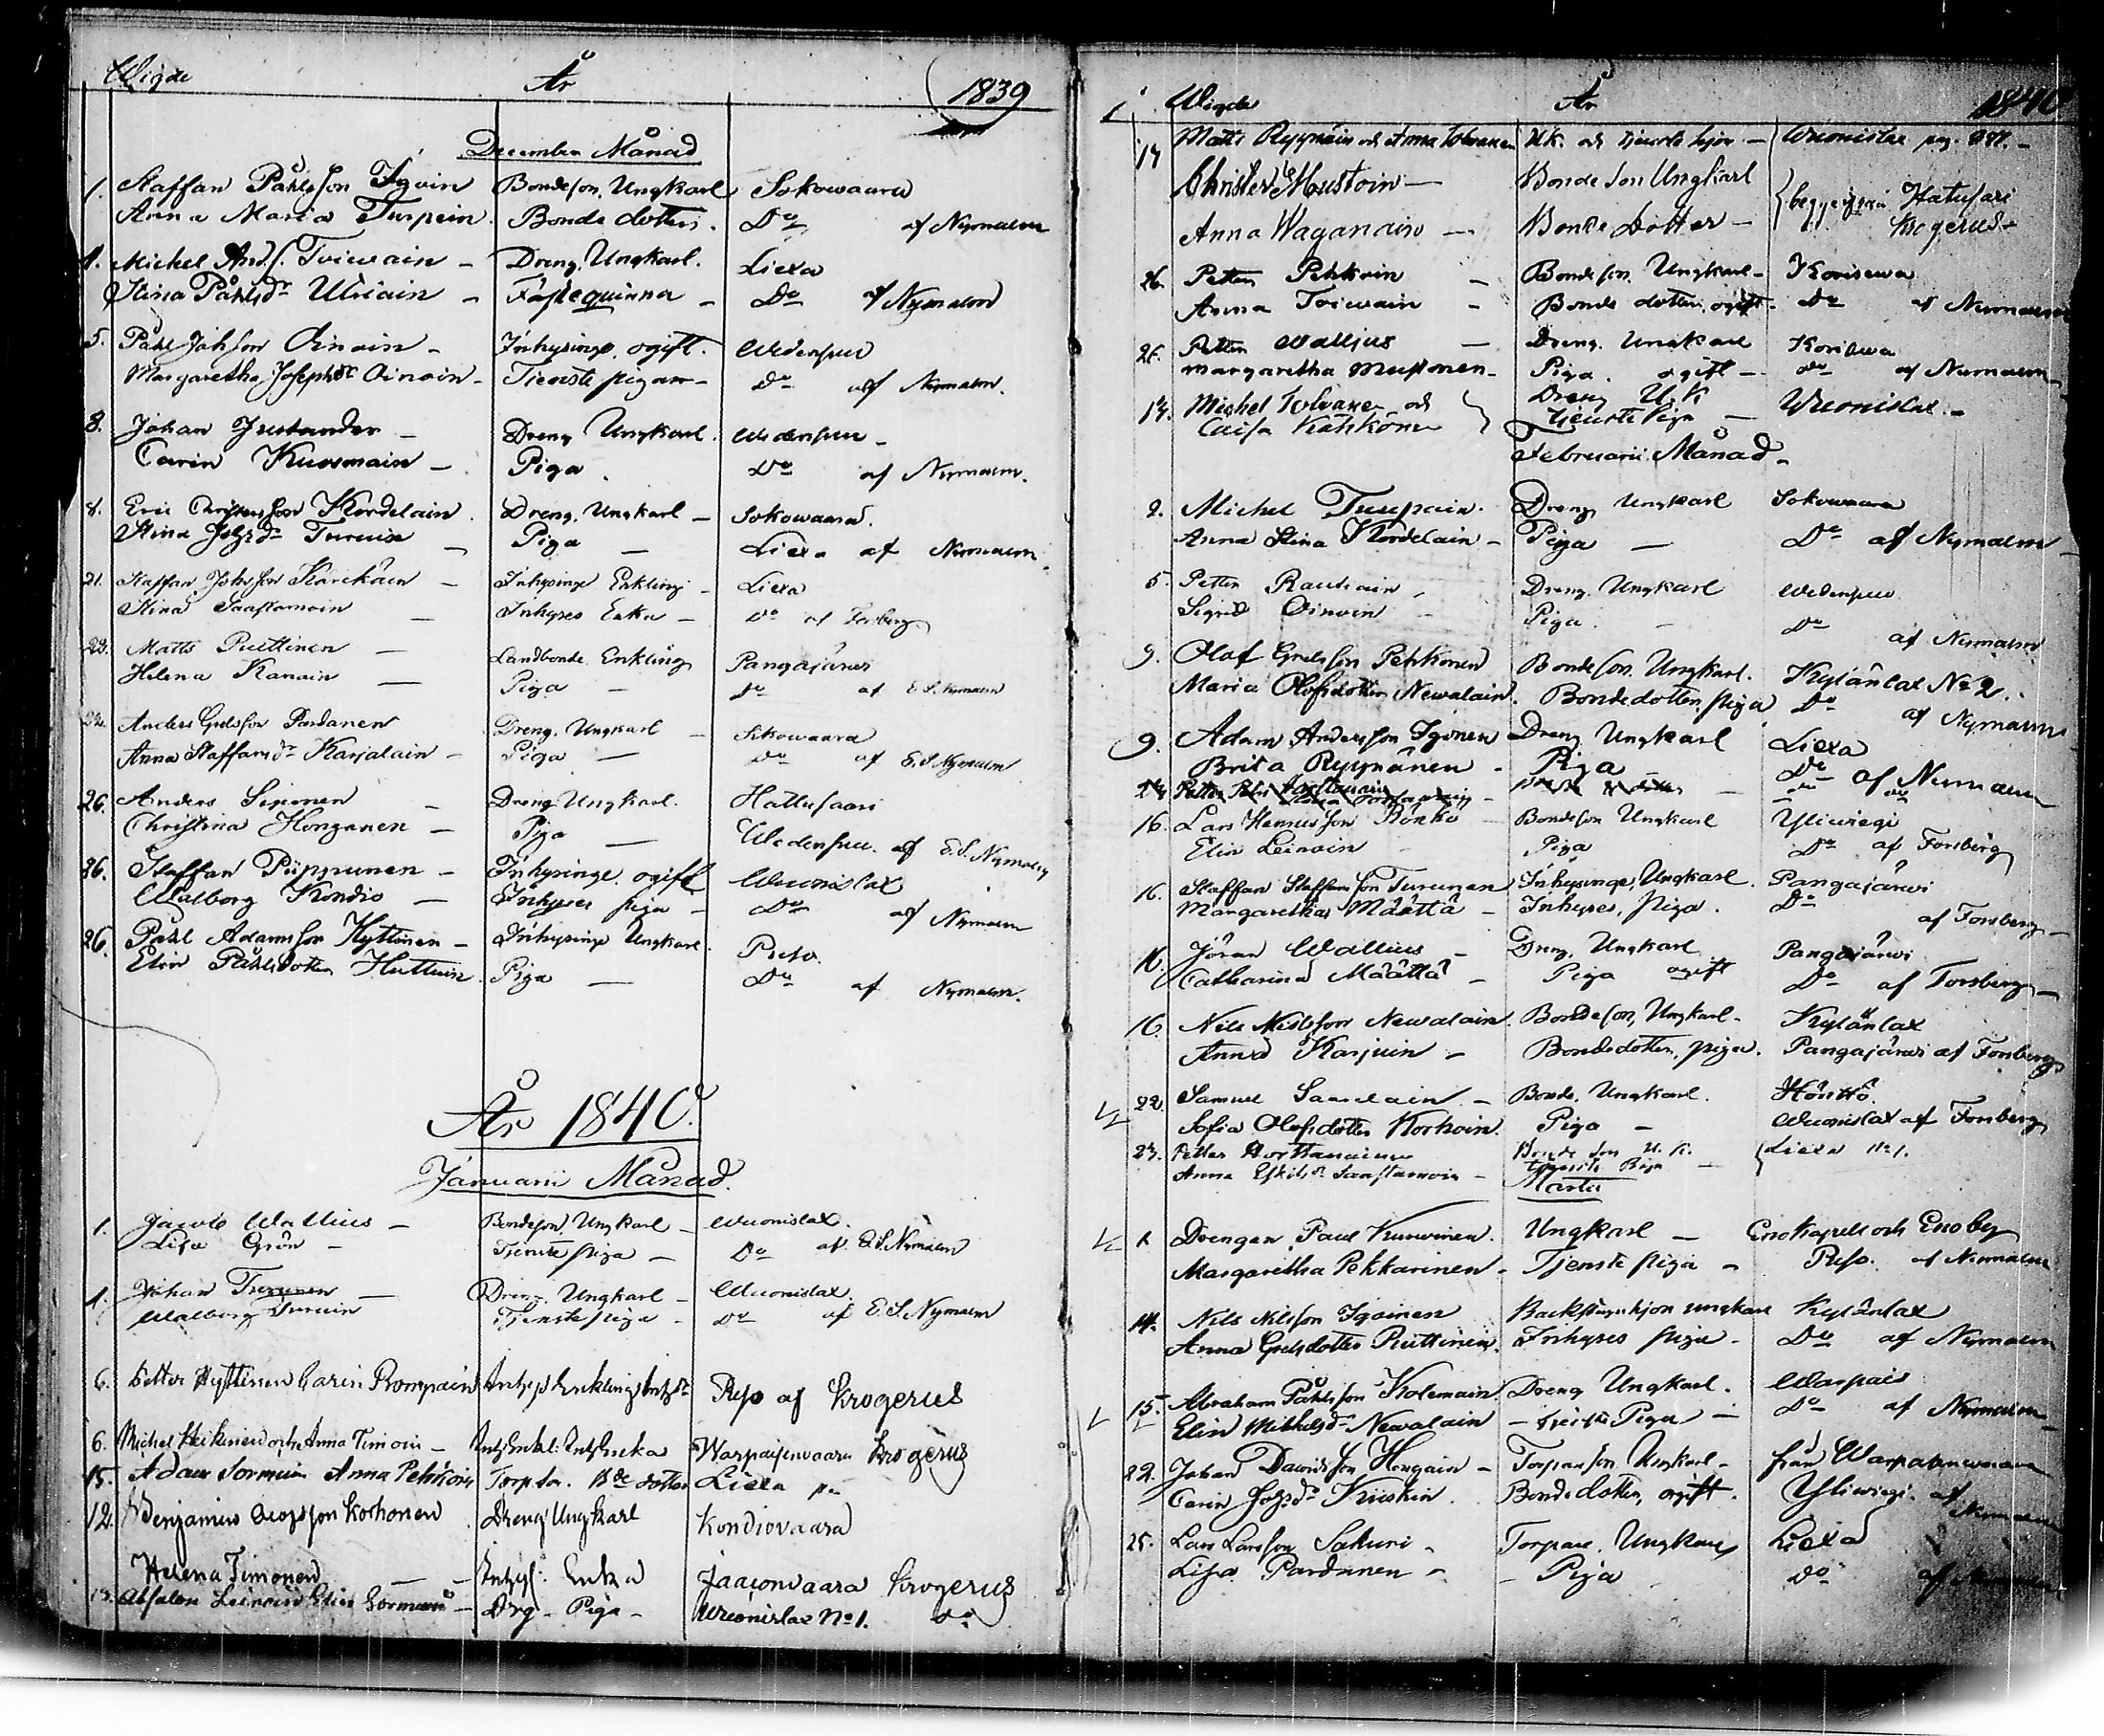 Wigde År 1839
December Månad
1. Staffan Påhlsson Igoin Bondeson, Ungkarl Sokowaara
Anna Maria Turpein Bonde dotter. Do af Nymalm
1. Michel And.s. Toiwain – Dreng, Ungkarl. Liexa
Stina Påhlsdr – Fästequinna – Do af Nymalm
5. Påhl Johsson Oinoin – Inhysinge, ogift. Wedensuu
Margaretha Josephsdr Oinoin – Tienste pigan – Do af Nymalm.
8. Johan – Dreng Ungkarl. Wedensuu –
Carin Kuosmain – Piga. Do af Nymalm.
8. Eric Christersson Kordelain. Dreng, Ungkarl – Sokowaara.
Stina Johsdr Turuin – Piga – Liexa af Nymalm.
21. Staffan Johsson Kärckäin – Inhysinge Enkling – Liexa
Stina Saastamoin – Inhyses Enka – Do af Forsberg
22. Matts Puttinen – Landbonde, Enkling Pangajärwi
Helena Kanain – Piga – Do af E. S. Nymalm
22. Anders Grelsson Pardanen Dreng, Ungkarl – Sokowaara
Anna Staffansdr Karjalain – Piga – Do af E. S. Nymalm
26. Anders Siponen – Dreng Ungkarl. Hattusaari
Christina Honganen – Piga – Wedensuu. af E. S. Nymalm
26. Staffan Piipponen – Inhysinge, ogift Wuonislax
Walborg Kondio – Inhyses piga – Do af Nymalm
26. Påhl Adamsson Hyttinen – Inhysinge Ungkarl. Puso
Elin Påhlsdotter Huttuin Piga – Do af Nymalm.
År 1840.
Januarii Månad.
1. Jacob Wallius – Bondeson, Ungkarl – Wuonislax.
Lisa Grön – Tjenste piga – Do af E. S. Nymalm
1. Johan Turunen – Dreng, Ungkarl – Wuonislax.
Walborg Turuin Tjenste piga – Do af E. S. Nymalm
6. Petter Hyttinen Carin Rompain Puso af Krogerus
6. Michel Heikinen och Anna Timoin – Warpaisenvaara Krogerus
15. Adam Sormuin Anna Pehkoin Torp. son. Bde dotter Liexa
12. Benjamin Korhonen. Dreng Ungkarl Kondiovaara
Helena Timonen – Enka Krogerus
13. Absalon Leinoin Elin Sormuin – Drg – Piga – Wuonislax No 1. Do
Wigde År 1840
14 Matts Ryynäin och Anna Tolvanen UK. och tjenste hjon – Wuonislax pag. –
Christer Mustoin – Bonde Son Ungkarl
Anna Waganain – Bonde Dotter – begge ifrån Hatusari Krogerus
26. Petter Pehkoin – Bondeson, Ungkarl – Koriseva
Anna Toiwain – Bonde dotter, ogift – Do af Nymalm
26. Petter Wallius – Dreng, Ungkarl Koriseva
Margaretha Mustonen – Piga. ogift – Do af Nymalm
14. Michel Tolvanen och Dreng U.K Wuonislax –
Caisa Kähkönen Tienste Piga –
Februarii Månad –
2. Michel Turpain. Dreng Ungkarl Sokowaara
Anna Stina Kordelain – Piga – Do af Nymalm –
5. Petter Rautiain, Dreng, Ungkarl Wedensuu
Sigrid Oinoin – Piga. – Do af Nymalm
9. Olof Grelsson Pehkonen Bondeson, Ungkarl. Kylänlax No 2.
Maria Olofsdotter Newalain. Bondedotter, piga Do af Nymalm
9. Adam Andersson Igonen Dreng Ungkarl Liexa
Brita Ryynänen – Piga – Do af Nymalm
16. Lars Hennesson Rönkö Bondeson Ungkarl Yliwiegi
Elin Leinoin Piga Do af Forsberg
16. Staffan Staffansson Turunen Inhysinge, Ungkarl. Pangajärwi
Margaretha Määttä – Inhyses, piga. Do af Forsberg –
16. Jöran Wallius – Dreng, Ungkarl Pangajärwi
Catharina Määttä – Piga ogift Do af Forsberg –
16. Nils Nilsson Newalain. Bondeson, Ungkarl – Kylänlax
Anna Karjuin – Bondedotter, piga. Pangajärwi af Forsberg
22. Samuel Saarelain – Bonde, Ungkarl. Höntö.
Sofia Olofsdotter Korhoin. Piga – Wuonislax af Forsberg
23. Petter Bonde Son U. K. Liexa No 1.
Anna Eskilsdr Saastamoin – tjenste Piga –
Martii
1 Drengen Paul Kurvinen. Ungkarl – Eno Kapell och Eno by
Margaretha Pekkarinen – Tjenste piga – Puso. af Nymalm
14. Nils Nilsson Igoinen Backstuguhjon ungkarl Kylänlax
Anna Grelsdotter Puttinen. Inhyses piga – Do af Nymalm
15. Abraham Påhlsson Kolemain Dreng Ungkarl. Warpais
Elin Mickelsdr Newalain – tjenste Piga – Do af Nymalm –
22. Johan Davidsson Hongain – Torpareson, Ungkarl – från Warpaisenwaara
Carin Johsdr Kiiskin. Bonde dotter, ogift. Yliwiegi. af Nymalm
25. Lars Larsson Sakuri – Torpare, Ungkarl Liexa
Lisa Pardanen – – Piga Do af Nymalm